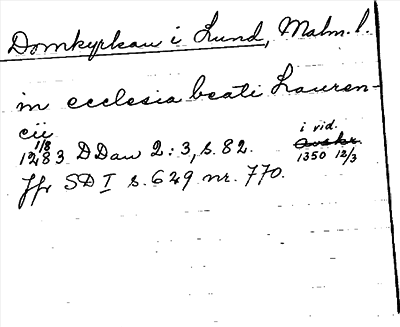 Domkyrkan i Lund, Malm. l.
in ecclesia beati Lauren-
cii
1283 1/8 DDan 2:3, s. 82. i vid.
Avskr. 1350 12/3
Jfr SD I s. 629 nr. 770.